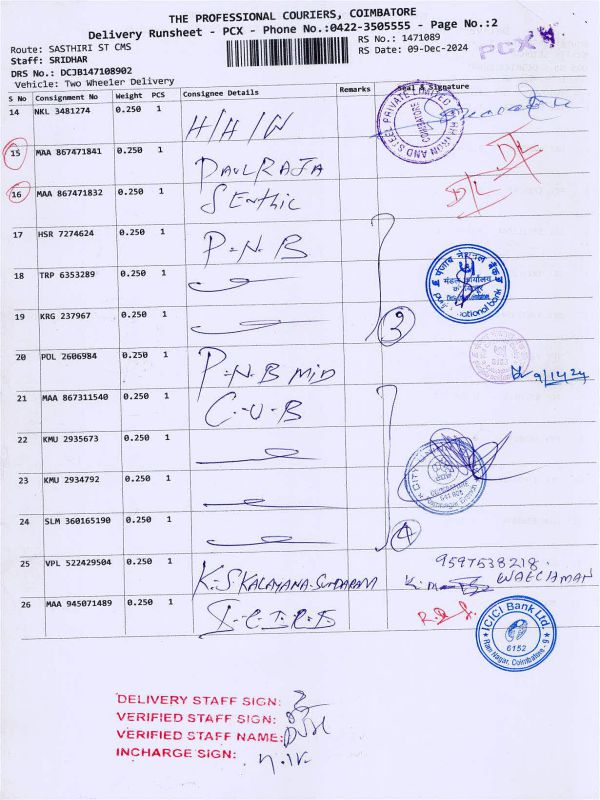 THE PROFESSIONAL COURIERS, COIMBATORE
Delivery Runsheet - PCX - Phone No.:0422-3505555 - Page No.:2
Route: SASTHIRI ST CMS
RS No.: 1471089
PCX
Staff: SRIDHAR
RS Date: 09-Dec-2024
DRS No.: DCJB147108902
Vehicle: Two Wheeler Delivery
S No Consignment No Weight PCS Consignee Details Remarks Seal & Signature
14 NKL 3481274 0.250 1 H/H/W
15 MAA 867471841 0.250 1 PAULRAJA DL
16 MAA 867471832 0.250 1 Senthil DL
17 HSR 7274624 0.250 1 P-N-B
18 TRP 6353289 0.250 1
19 KRG 237967 0.250 1 3
20 POL 2606984 0.250 1 P-N-B MID 9/12/24
21 MAA 867311540 0.250 1 C-U-B
22 KMU 2935673 0.250 1
23 KMU 2934792 0.250 1
24 SLM 360165190 0.250 1 4
25 VPL 522429504 0.250 1 K.S KALAYANA-SUNDARAM 9597538218.
26 MAA 945071489 0.250 1
ICICI Bank Ltd.
6152
Ram Nagar, Coimbatore - 9
DELIVERY STAFF SIGN:
VERIFIED STAFF SIGN:
VERIFIED STAFF NAME:
INCHARGE SIGN: